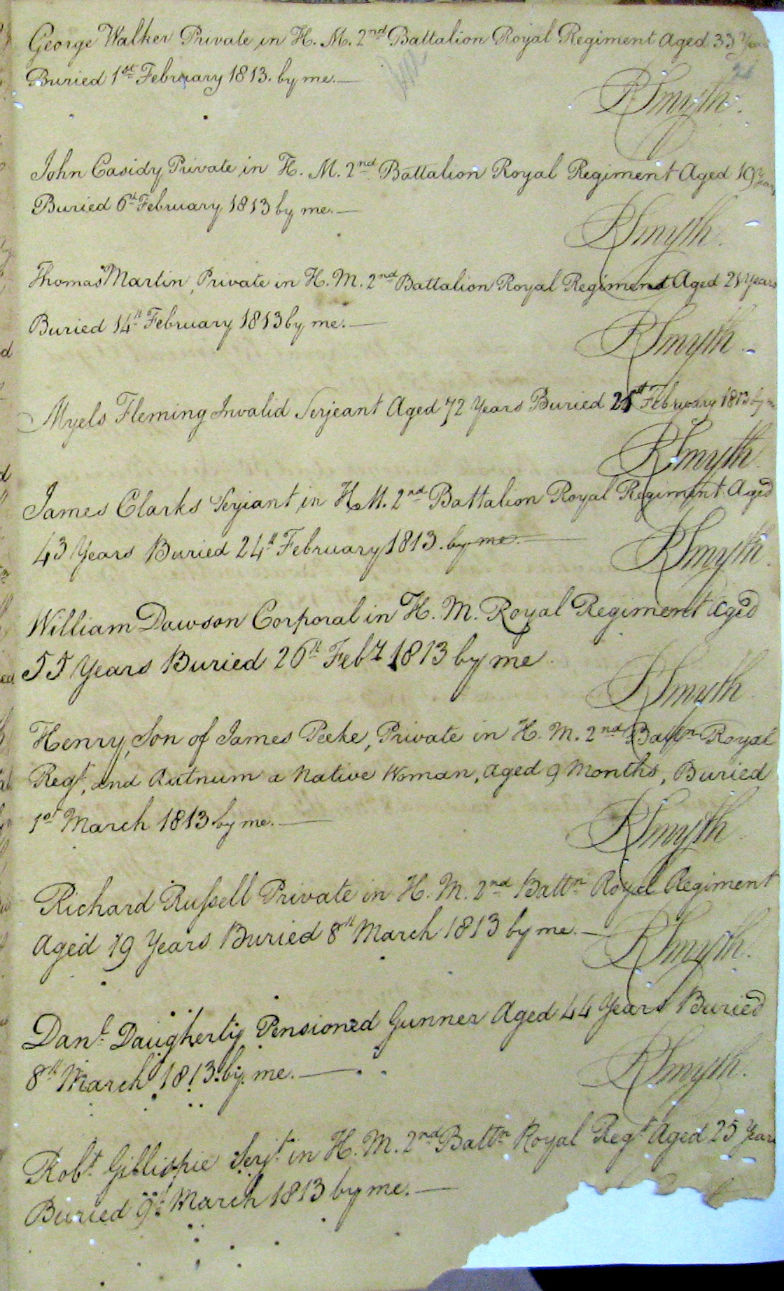 George Walker Private in H. M. 2nd Battalion Royal Regiment Aged 33
Buried 1st February 1813. by me.—
RSmyth.
John Casidy Private in H. M. 2nd Battalion Royal Regiment Aged 19 Years
Buried 6th February 1813 by me.—
RSmyth.
Thomas Martin, Private in H. M. 2nd Battalion Royal Regiment Aged 21 Years
Buried 14th February 1813 by me.—
RSmyth.
Myels Fleming Invalid Serjeant Aged 72 Years Buried 21st February 1813 by me
RSmyth.
James Clarks Serjiant in H. M. 2nd Battalion Royal Regiment Aged
43 Years Buried 24th February 1813. by me.—
RSmyth.
William Dawson Corporal in H. M. Royal Regiment aged
55 Years Buried 26th Feby 1813 by me
RSmyth.
Henry, Son of James Peeke, Private in H. M. 2nd Battn Royal
Regt, and Autnum a Native Woman, aged 9 Months, Buried
1st March 1813 by me.—
RSmyth.
Richard Russell Private in H. M. 2nd Battn Royal Regiment
aged 19 Years Buried 8th March 1813 by me.—
RSmyth.
Danl. Daugherty Pensioned Gunner Aged 44 Years Buried
8th March 1813. by me.—
RSmyth.
Robt Gillispie Serjt in H. M. 2nd Battn Royal Regt Aged 25 Years
Buried 9th March 1813 by me.—